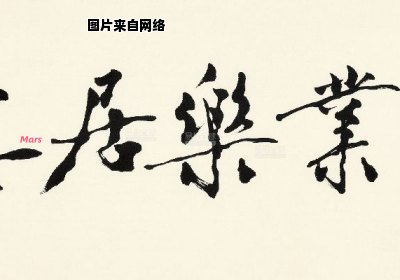 图片来自网络
Mars
居樂業